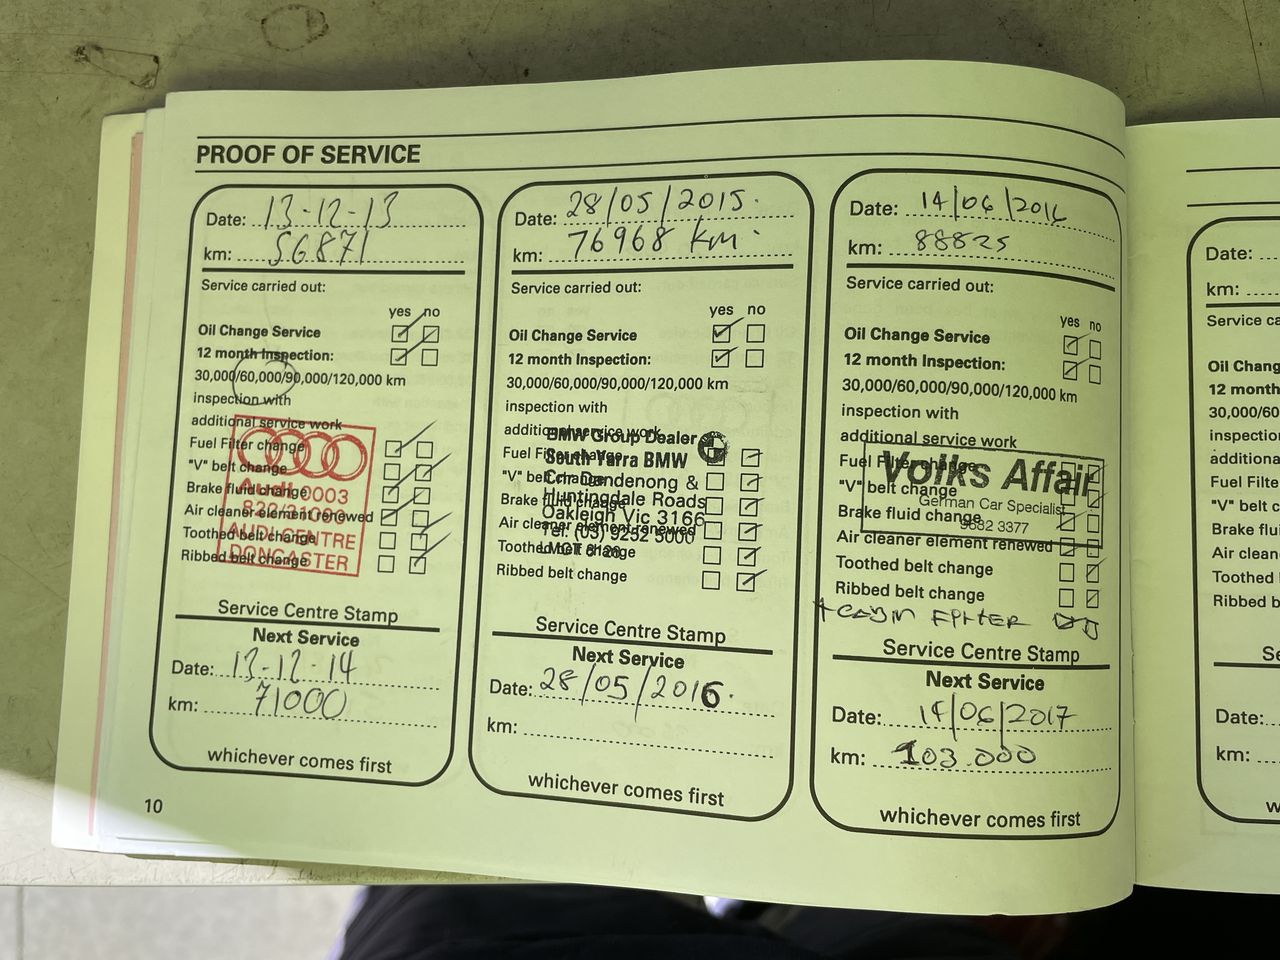 PROOF OF SERVICE
Date: 13-12-13
km: 56871
Service carried out:
yes no
Oil Change Service
12 month Inspection:
30,000/60,000/90,000/120,000 km
inspection with
additional service work
Fuel Filter change
"V" belt change
Brake fluid change
Air cleaner element renewed
Toothed belt change
Ribbed belt change
Audi 0003
AUDI CENTRE
DONCASTER
Service Centre Stamp
Next Service
Date: 13-12-14
km: 71000
whichever comes first
10
Date: 28/05/2015.
km: 76968 km.
Service carried out:
yes no
Oil Change Service
12 month Inspection:
30,000/60,000/90,000/120,000 km
inspection with
additional service work
Fuel Filter change
"V" belt change
Brake fluid change
Air cleaner element renewed
Toothed belt change
Ribbed belt change
BMW Group Dealer
South Yarra BMW
Cnr Dandenong &
Huntingdale Roads
Oakleigh Vic 3166
Tel: (03) 9252 5000
LMCT 8128
Service Centre Stamp
Next Service
Date: 28/05/2016.
km:
whichever comes first
Date: 14/06/2016
km: 88825
Service carried out:
yes no
Oil Change Service
12 month Inspection:
30,000/60,000/90,000/120,000 km
inspection with
additional service work
Fuel Filter change
"V" belt change
Brake fluid change
Air cleaner element renewed
Toothed belt change
Ribbed belt change
Volks Affair
German Car Specialist
9682 3377
+ CABIN FILTER
Service Centre Stamp
Next Service
Date: 14/06/2017
km: 103.000
whichever comes first
Date:
km:
Service ca
Oil Chang
12 month
30,000/60
inspection
additional
Fuel Filte
"V" belt c
Brake flu
Air clean
Toothed
Ribbed b
Se
Date:
km:
w